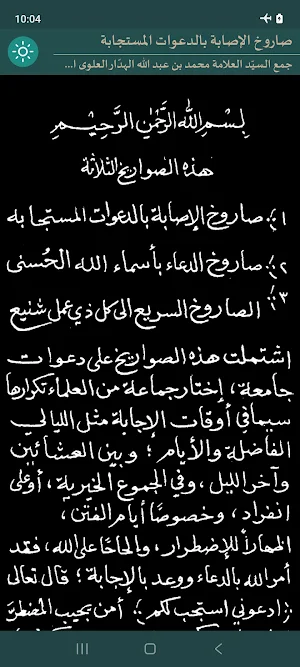 10:04
صاروخ الإصابة بالدعوات المستجابة
جمع السيّد العلامة محمد بن عبد الله الهدّار العلوي ا...
بِسْمِ اللهِ الرَّحْمٰنِ الرَّحِيْمِ
هذه الصواريخ الثلاثة
١: صاروخ الإصابة بالدعوات المستجابه
٢: صاروخ الدعاء بأسماء الله الحُسنى
٣: الصاروخ السريع الى كل ذي عمل شنيع
اشتملت هذه الصواريخ على دعوات
جامعة، إختار جماعة من العلماء تكرارها
سيما في أوقات الإجابة مثل الليالي
الفاضلة والأيام؛ وبين العشائين
وآخر الليل، وفي الجموع الخيرية، أو على
انفراد، وخصوصًا أيام الفتن،
إظهارًا للإضطرار، وإلحاحًا على الله، فقد
أمر الله بالدعاء ووعد بالإجابة؛ قال تعالى
(ادعوني استجب لكم)؛ أمن يجيب المضطرّ